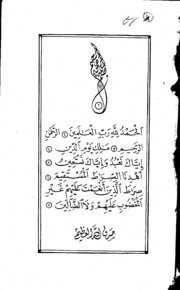 ٱلْحَمْدُ لِلَّهِ رَبِّ ٱلْعَـٰلَمِينَ ۝ ٱلرَّحْمَـٰنِ
ٱلرَّحِيمِ ۝ مَـٰلِكِ يَوْمِ ٱلدِّينِ ۝
إِيَّاكَ نَعْبُدُ وَإِيَّاكَ نَسْتَعِينُ ۝
ٱهْدِنَا ٱلصِّرَٰطَ ٱلْمُسْتَقِيمَ ۝
صِرَٰطَ ٱلَّذِينَ أَنْعَمْتَ عَلَيْهِمْ غَيْرِ
ٱلْمَغْضُوبِ عَلَيْهِمْ وَلَا ٱلضَّآلِّينَ ۝
صدق الله العظيم